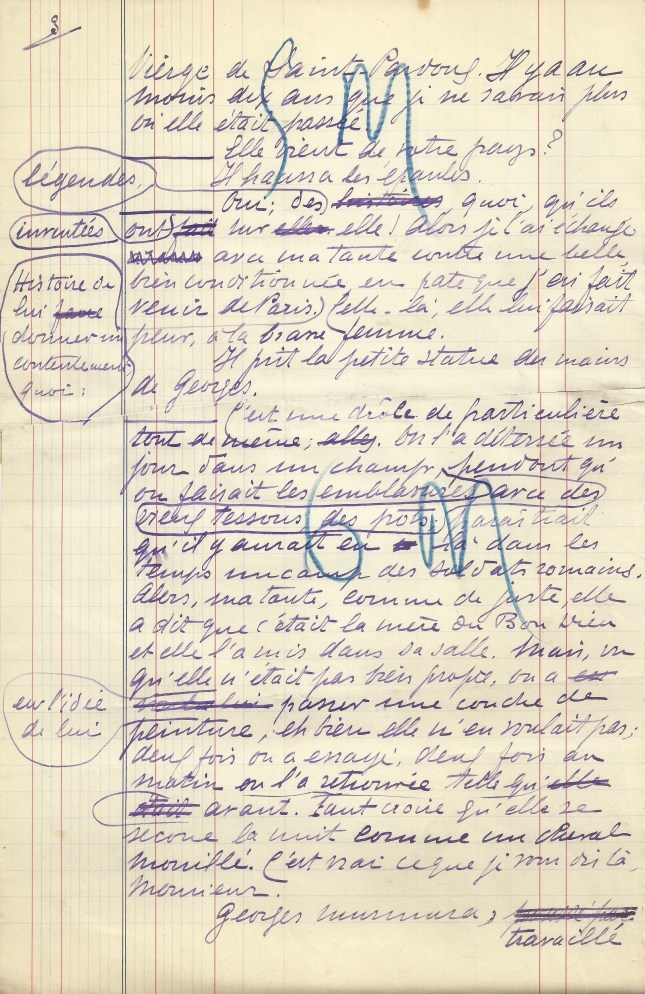 3
Vierge de Saint Pardoux. Il y a au
moins dix ans que je ne savais plus
où elle était passée
Elle vient de votre pays?
Il haussa les épaules.
légendes,
Oui; des histoires quoi, qu'ils
inventées
ont fait sur elle elle! Alors je l'ai échangé
avec ma tante contre une belle,
Histoire de
lui faire
donner un
contentement
quoi:
bien conditionnée, en pate que j'ai fait
venir de Paris. Celle-là, elle lui faisait
peur, à la brave femme.
Il prit la petite statue des mains
de Georges.
C'est une drôle de particulière
tout de même, allez. On l'a déterrée un
jour dans un champ, pendant qu'
on faisait les emblavures avec des
vieux tessons des pots. Paraîtrait
qu'il y aurait eu là dans les
temps un camp des soldats romains.
Alors, ma tante, comme de juste, elle
a dit que c'était la mère du Bon Dieu
et elle l'a mis dans sa salle. Mais, vu
qu'elle n'était pas bien propre, on a eu
eu l'idée
de lui
passer une couche de
peinture, eh bien elle n'en voulait pas;
deux fois on a essayé, deux fois au
matin on l'a retrouvée telle qu'elle
était avant. Faut croire qu'elle se
secoue la nuit comme un cheval
mouillé. C'est vrai ce que je vous dis là,
Monsieur.
Georges murmura,
travaillé
S M
6 M